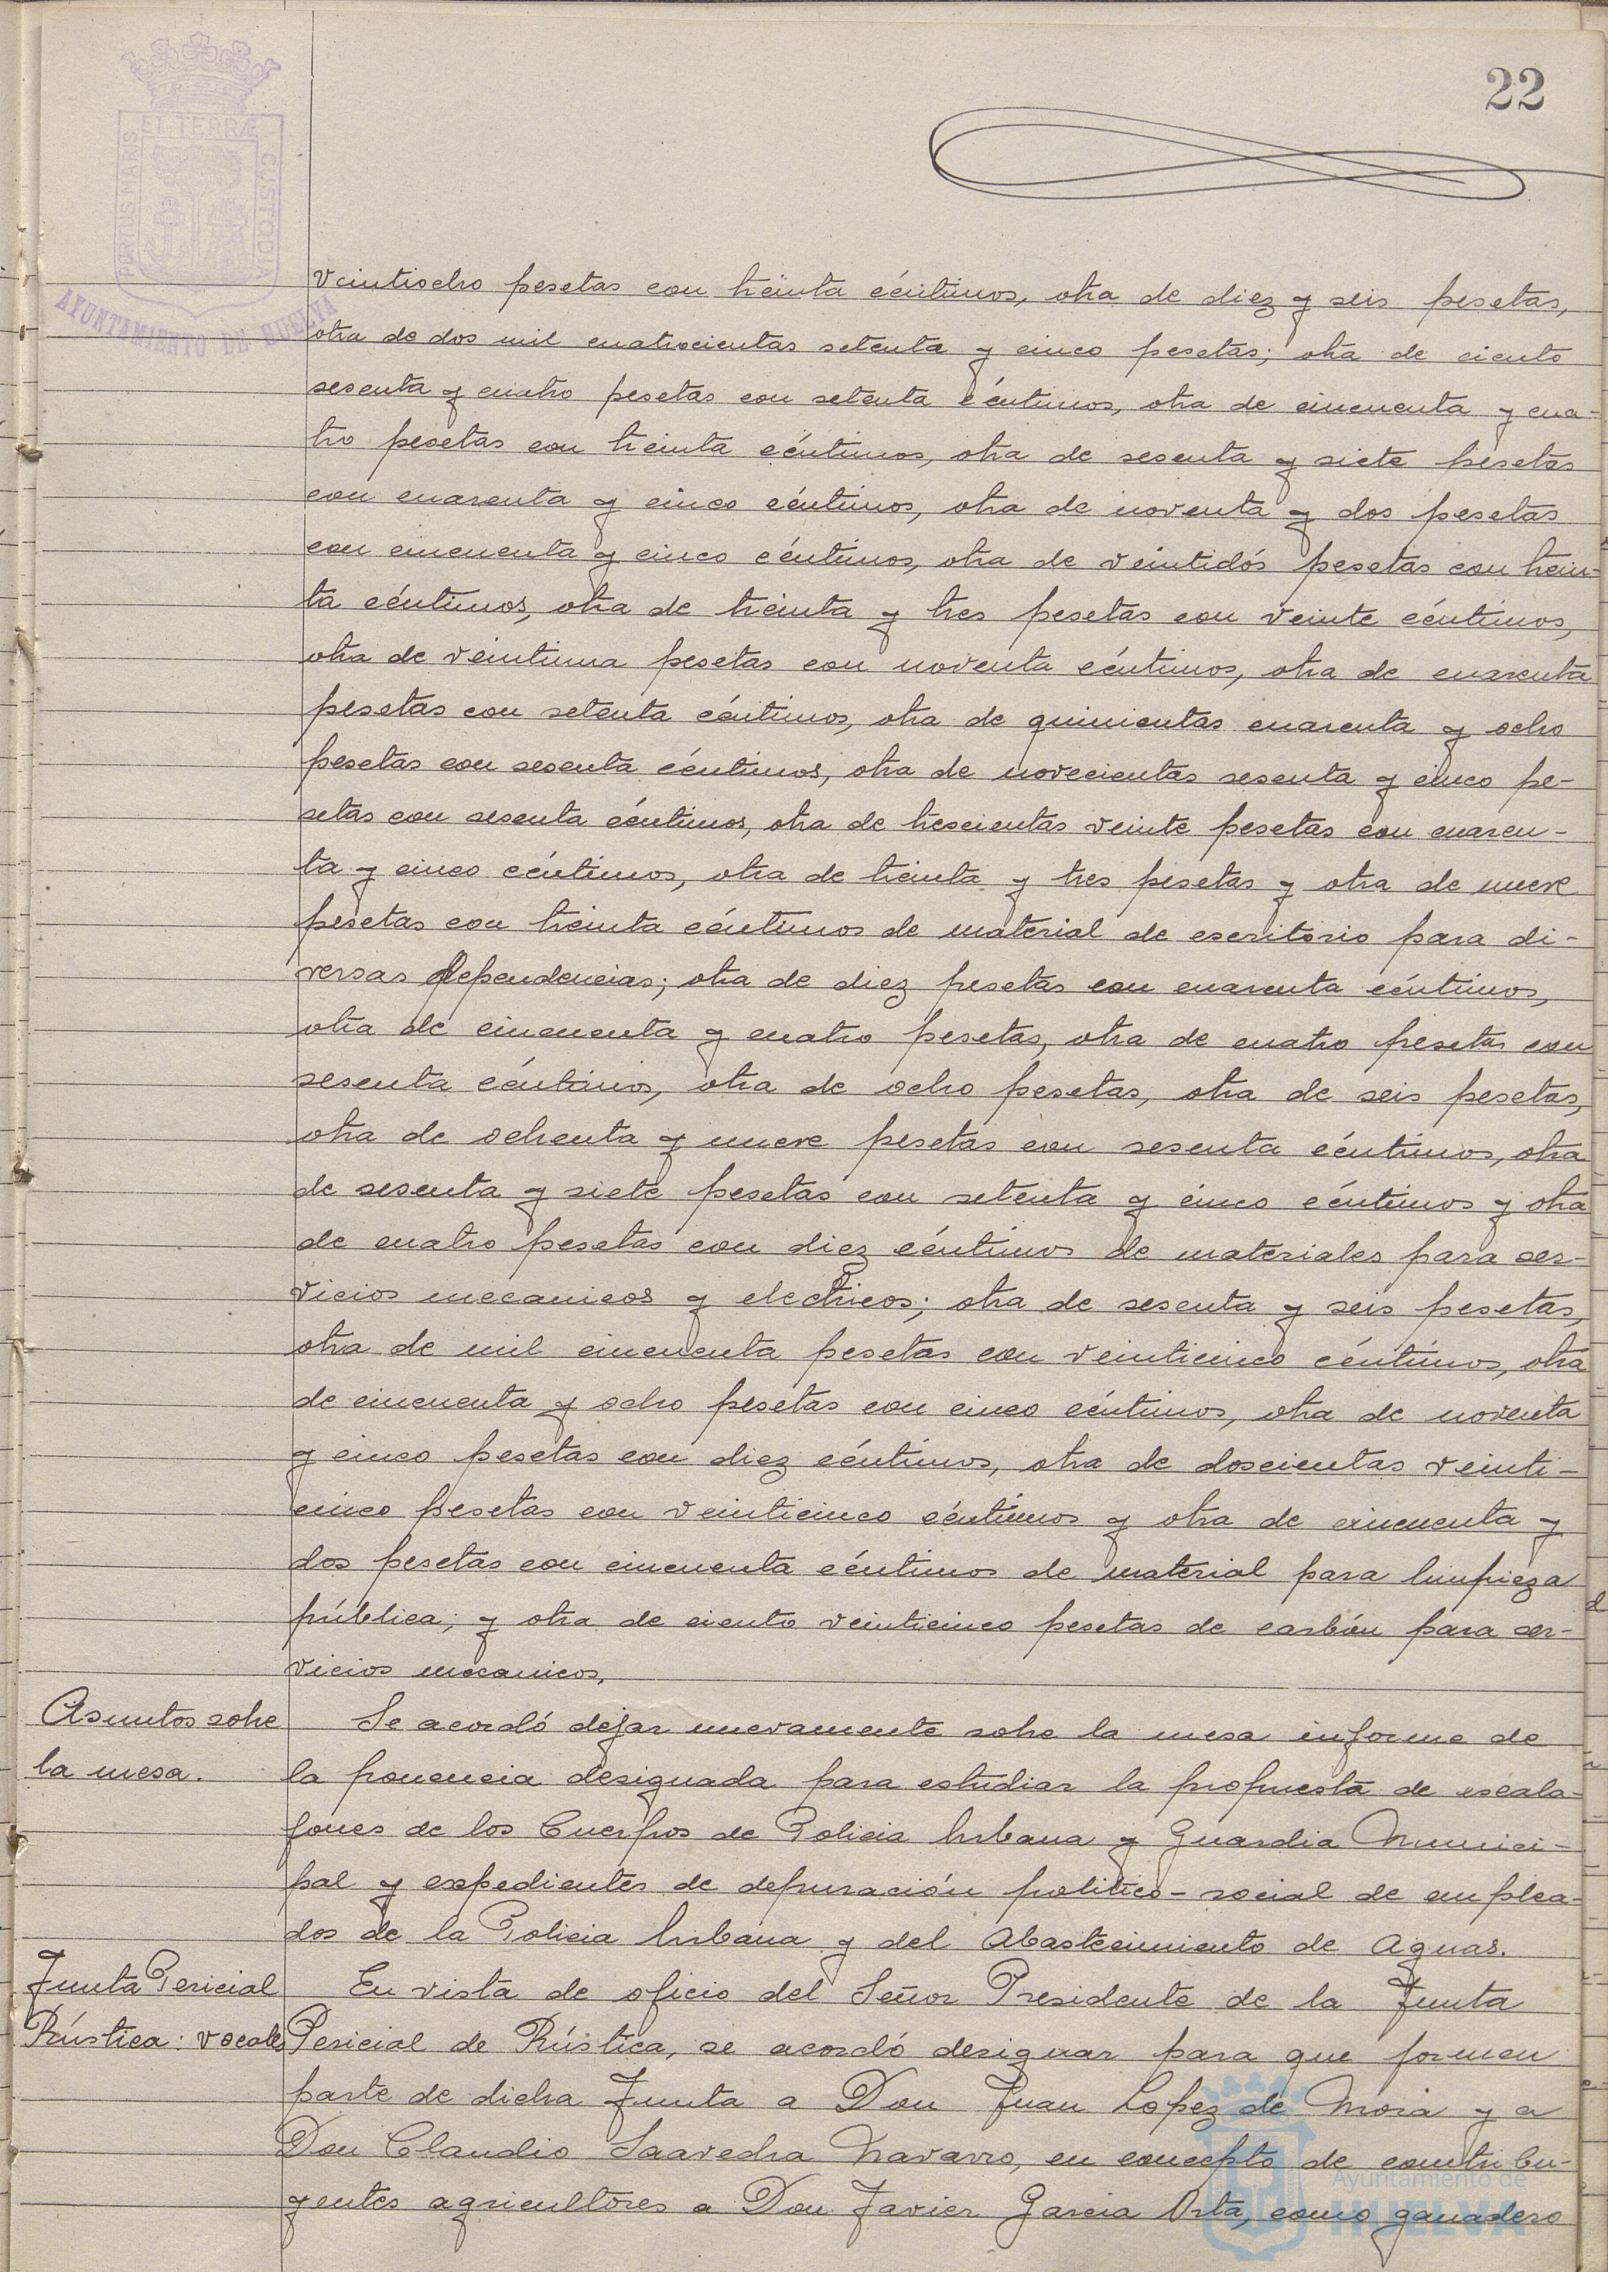 22
PORTUS MARIS
ET TERRÆ
CUSTODIA
AYUNTAMIENTO DE HUELVA
veintiocho pesetas con treinta céntimos, otra de diez y seis pesetas,
otra de dos mil cuatrocientas setenta y cinco pesetas; otra de ciento
sesenta y cuatro pesetas con setenta céntimos, otra de cincuenta y cua-
tro pesetas con treinta céntimos, otra de sesenta y siete pesetas
con cuarenta y cinco céntimos, otra de noventa y dos pesetas
con cincuenta y cinco céntimos, otra de veintidós pesetas con trein-
ta céntimos, otra de treinta y tres pesetas con veinte céntimos,
otra de veintiuna pesetas con noventa céntimos, otra de cuarenta
pesetas con setenta céntimos, otra de quinientas cuarenta y ocho
pesetas con sesenta céntimos, otra de novecientas sesenta y cinco pe-
setas con sesenta céntimos, otra de trescientas veinte pesetas con cuaren-
ta y cinco céntimos, otra de treinta y tres pesetas y otra de nueve
pesetas con treinta céntimos de material de escritorio para di-
versas dependencias; otra de diez pesetas con cuarenta céntimos,
otra de cincuenta y cuatro pesetas, otra de cuatro pesetas con
sesenta céntimos, otra de ocho pesetas, otra de seis pesetas,
otra de ochenta y nueve pesetas con sesenta céntimos, otra
de sesenta y siete pesetas con setenta y cinco céntimos y otra
de cuatro pesetas con diez céntimos de materiales para ser-
vicios mecanicos y electricos; otra de sesenta y seis pesetas,
otra de mil cincuenta pesetas con veinticinco céntimos, otra
de cincuenta y ocho pesetas con cinco céntimos, otra de noventa
y cinco pesetas con diez céntimos, otra de doscientas veinti-
cinco pesetas con veinticinco céntimos y otra de cincuenta y
dos pesetas con cincuenta céntimos de material para limpieza
pública; y otra de ciento veinticinco pesetas de carbón para ser-
vicios mecanicos.
Asuntos sobre
la mesa.
Se acordó dejar nuevamente sobre la mesa informe de
la ponencia designada para estudiar la propuesta de escala-
fones de los Cuerpos de Policia Urbana y Guardia Munici-
pal y expedientes de depuración politico-social de emplea-
dos de la Policia Urbana y del Abastecimiento de Aguas.
Junta Pericial
Rústica: vocales
En vista de oficio del Señor Presidente de la Junta
Pericial de Rústica, se acordó designar para que formen
parte de dicha Junta a Don Juan Lopez de Mora y a
Don Claudio Saavedra Navarro, en concepto de contribu-
yentes agricultores a Don Javier Garcia Orta, como ganadero
Ayuntamiento de
HUELVA